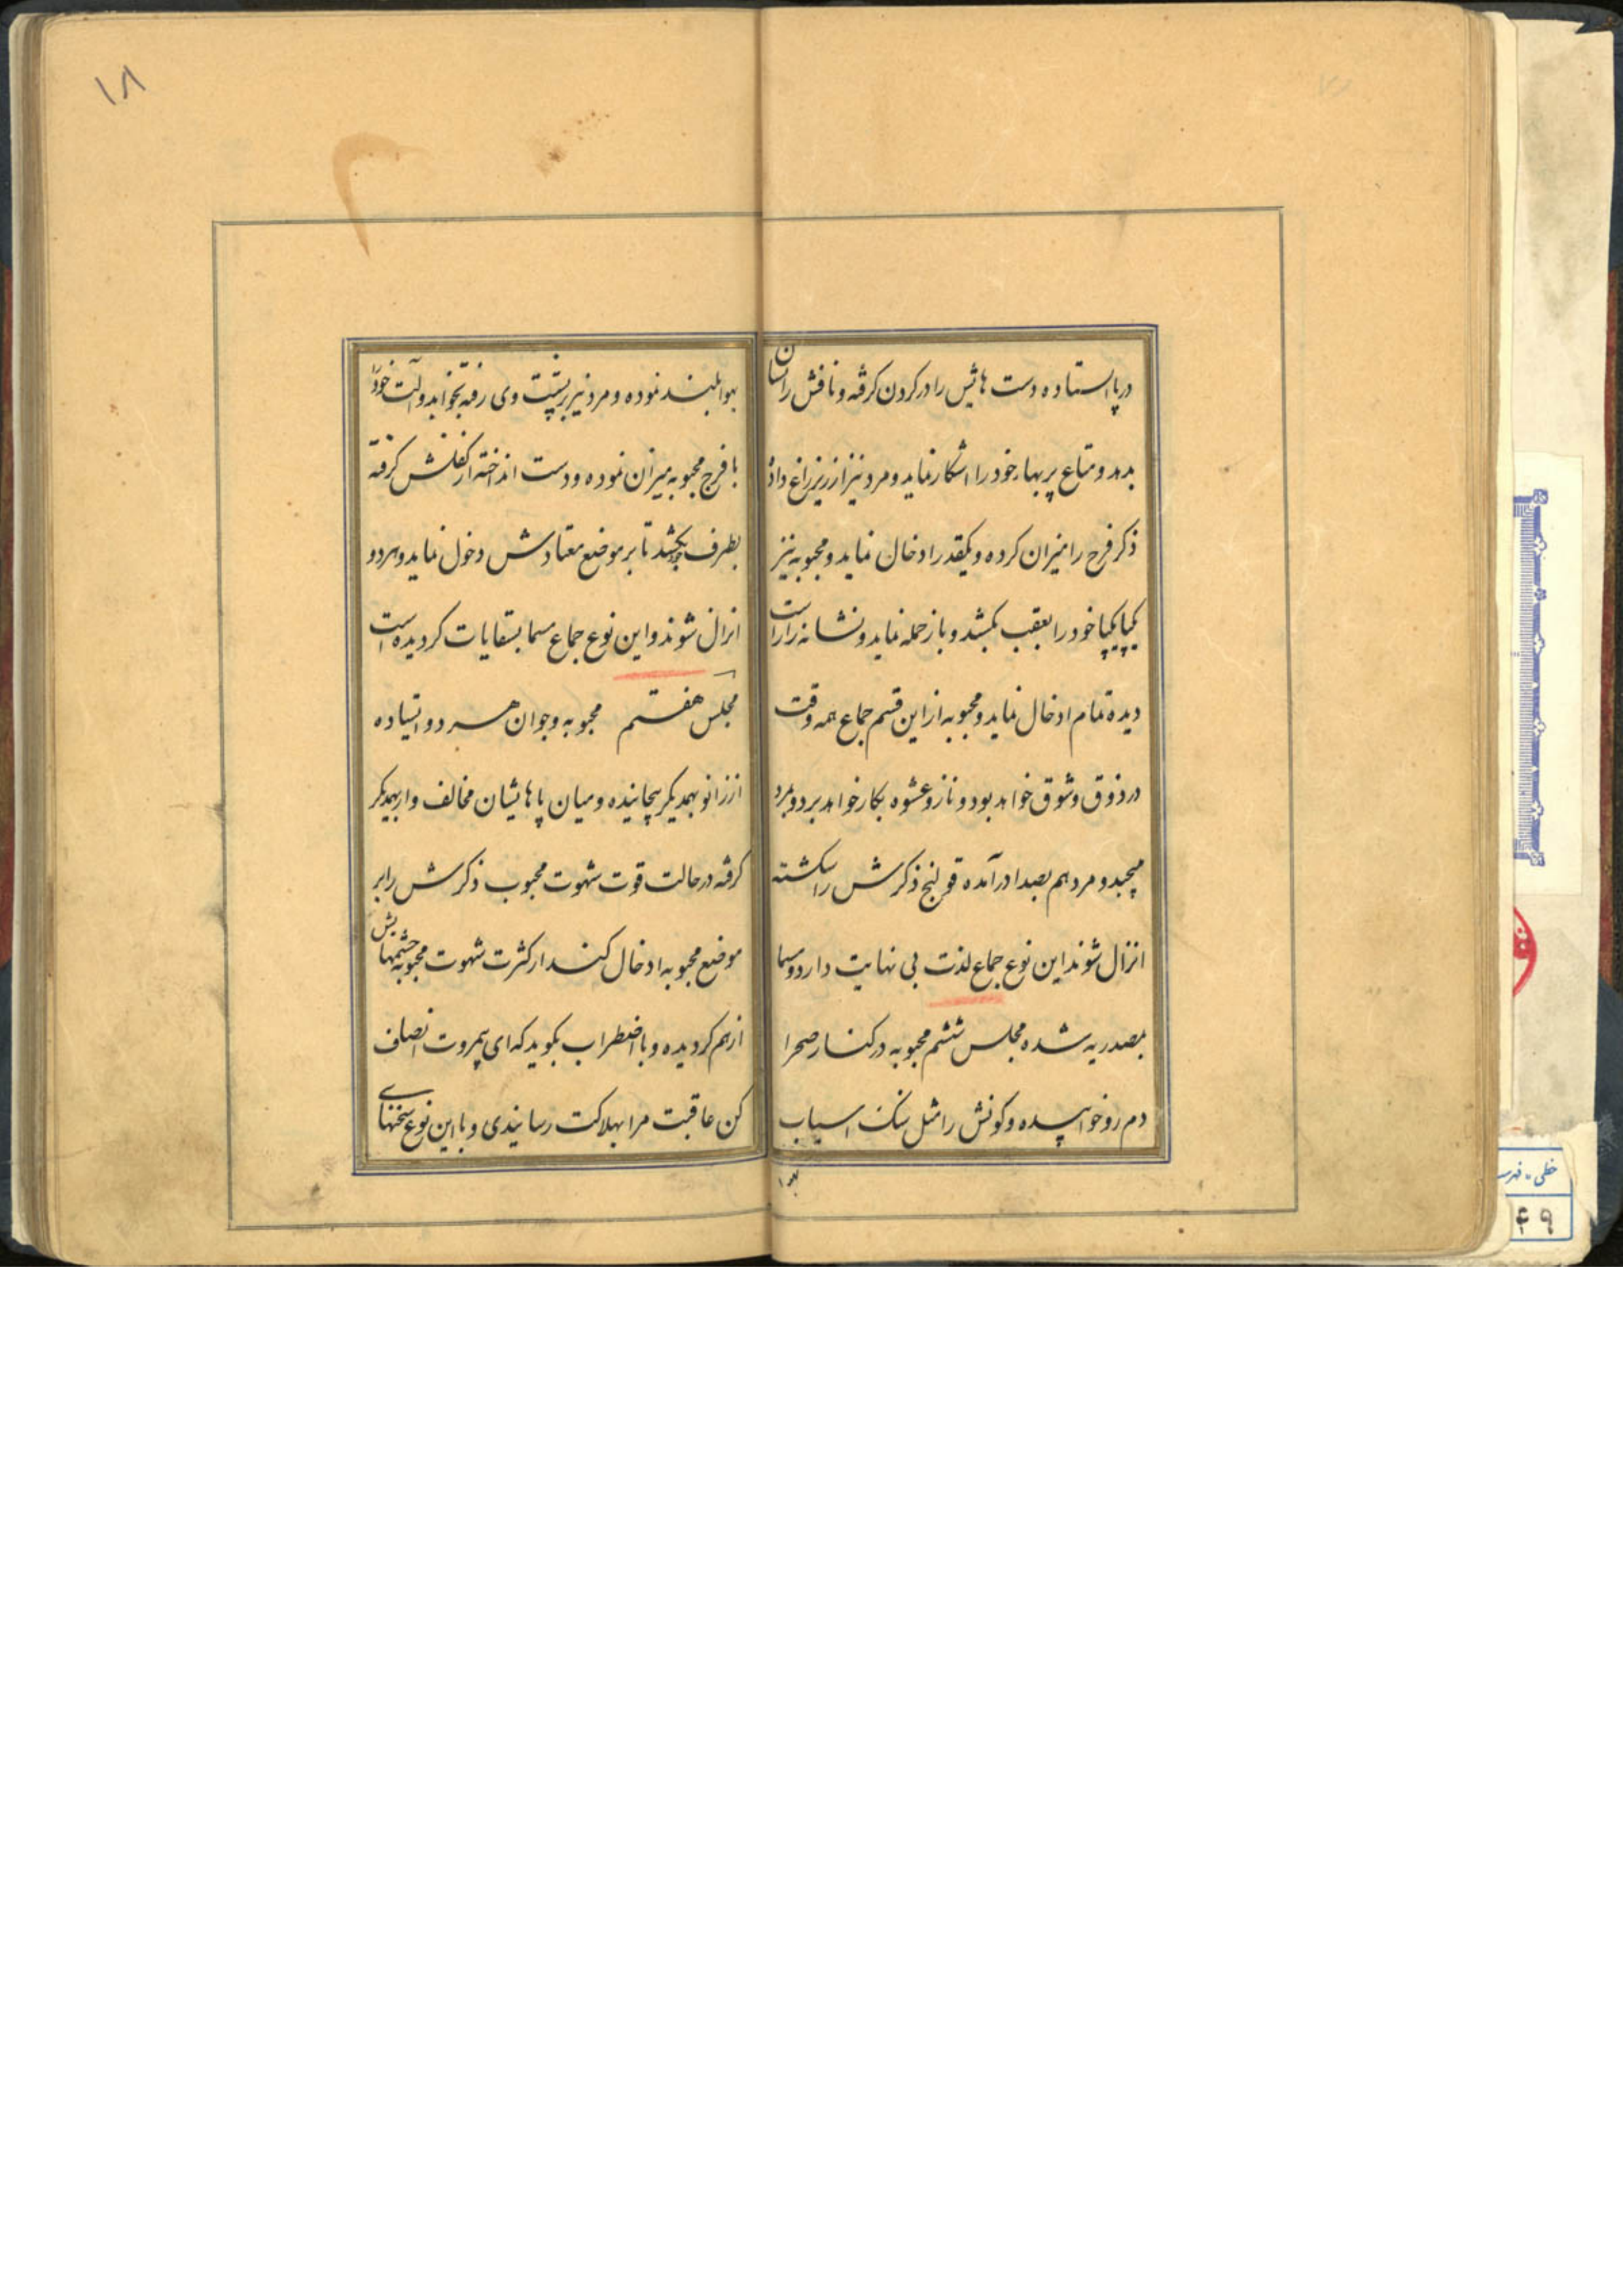 درپا ایستاده دست هاش را در کردن کرفته و نافش را نشان
بدهد و متاع پر بهار خود را اشکار نماید و مرد نیز از زیر زاغ داده
ذکر فرج را میزان کرده و یکقدر ادخال نماید و محبوبه نیز
یکپا یکپا خود را بعقب بکشد و باز حمله نماید و نشانه را راست
دیده تمام ادخال نماید و محبوبه از این قسم جماع همه وقت
در ذوق و شوق خواهد بود و ناز و عشوه بکار خواهد برد و بمرد
میچبد و مرد هم بصدا در آمده قولنج ذکرش را شکسته
انزال شوند این نوع جماع لذت بی نهایت دارد و مسما
بمصدریه شده مجلس ششم محبوبه در کنار صحرا
دم رو خوابیده و کونش را مثل سنک اسیاب
بهوا
۱۸
بهوا بلند نموده و مرد نیز بر پشت وی رفته بخوابد و آلت خود را
با فرج محبوبه میزان نموده و دست انداخته از کفلش کرفته
بطرف خود بکشد تا بر موضع معتادش دخول نماید و هر دو
انزال شوند و این نوع جماع مسما بسقایات کردیده است
مجلس هفتم محبوبه و جوان هر دو ایستاده
از زانو بهمدیکر پیچانیده و میان پاهایشان مخالف وار بهمدیکر
کرفته در حالت قوت شهوت محبوب ذکرش را بر
موضع محبوبه ادخال کند از کثرت شهوت محبوبه چشمهایش
از هم کردیده و با اضطراب بکوید که ای بیمروت انصاف
کن عاقبت مرا بهلاکت رسانیدی و با این نوع سخنهای
خطی - فهرست
۴۹